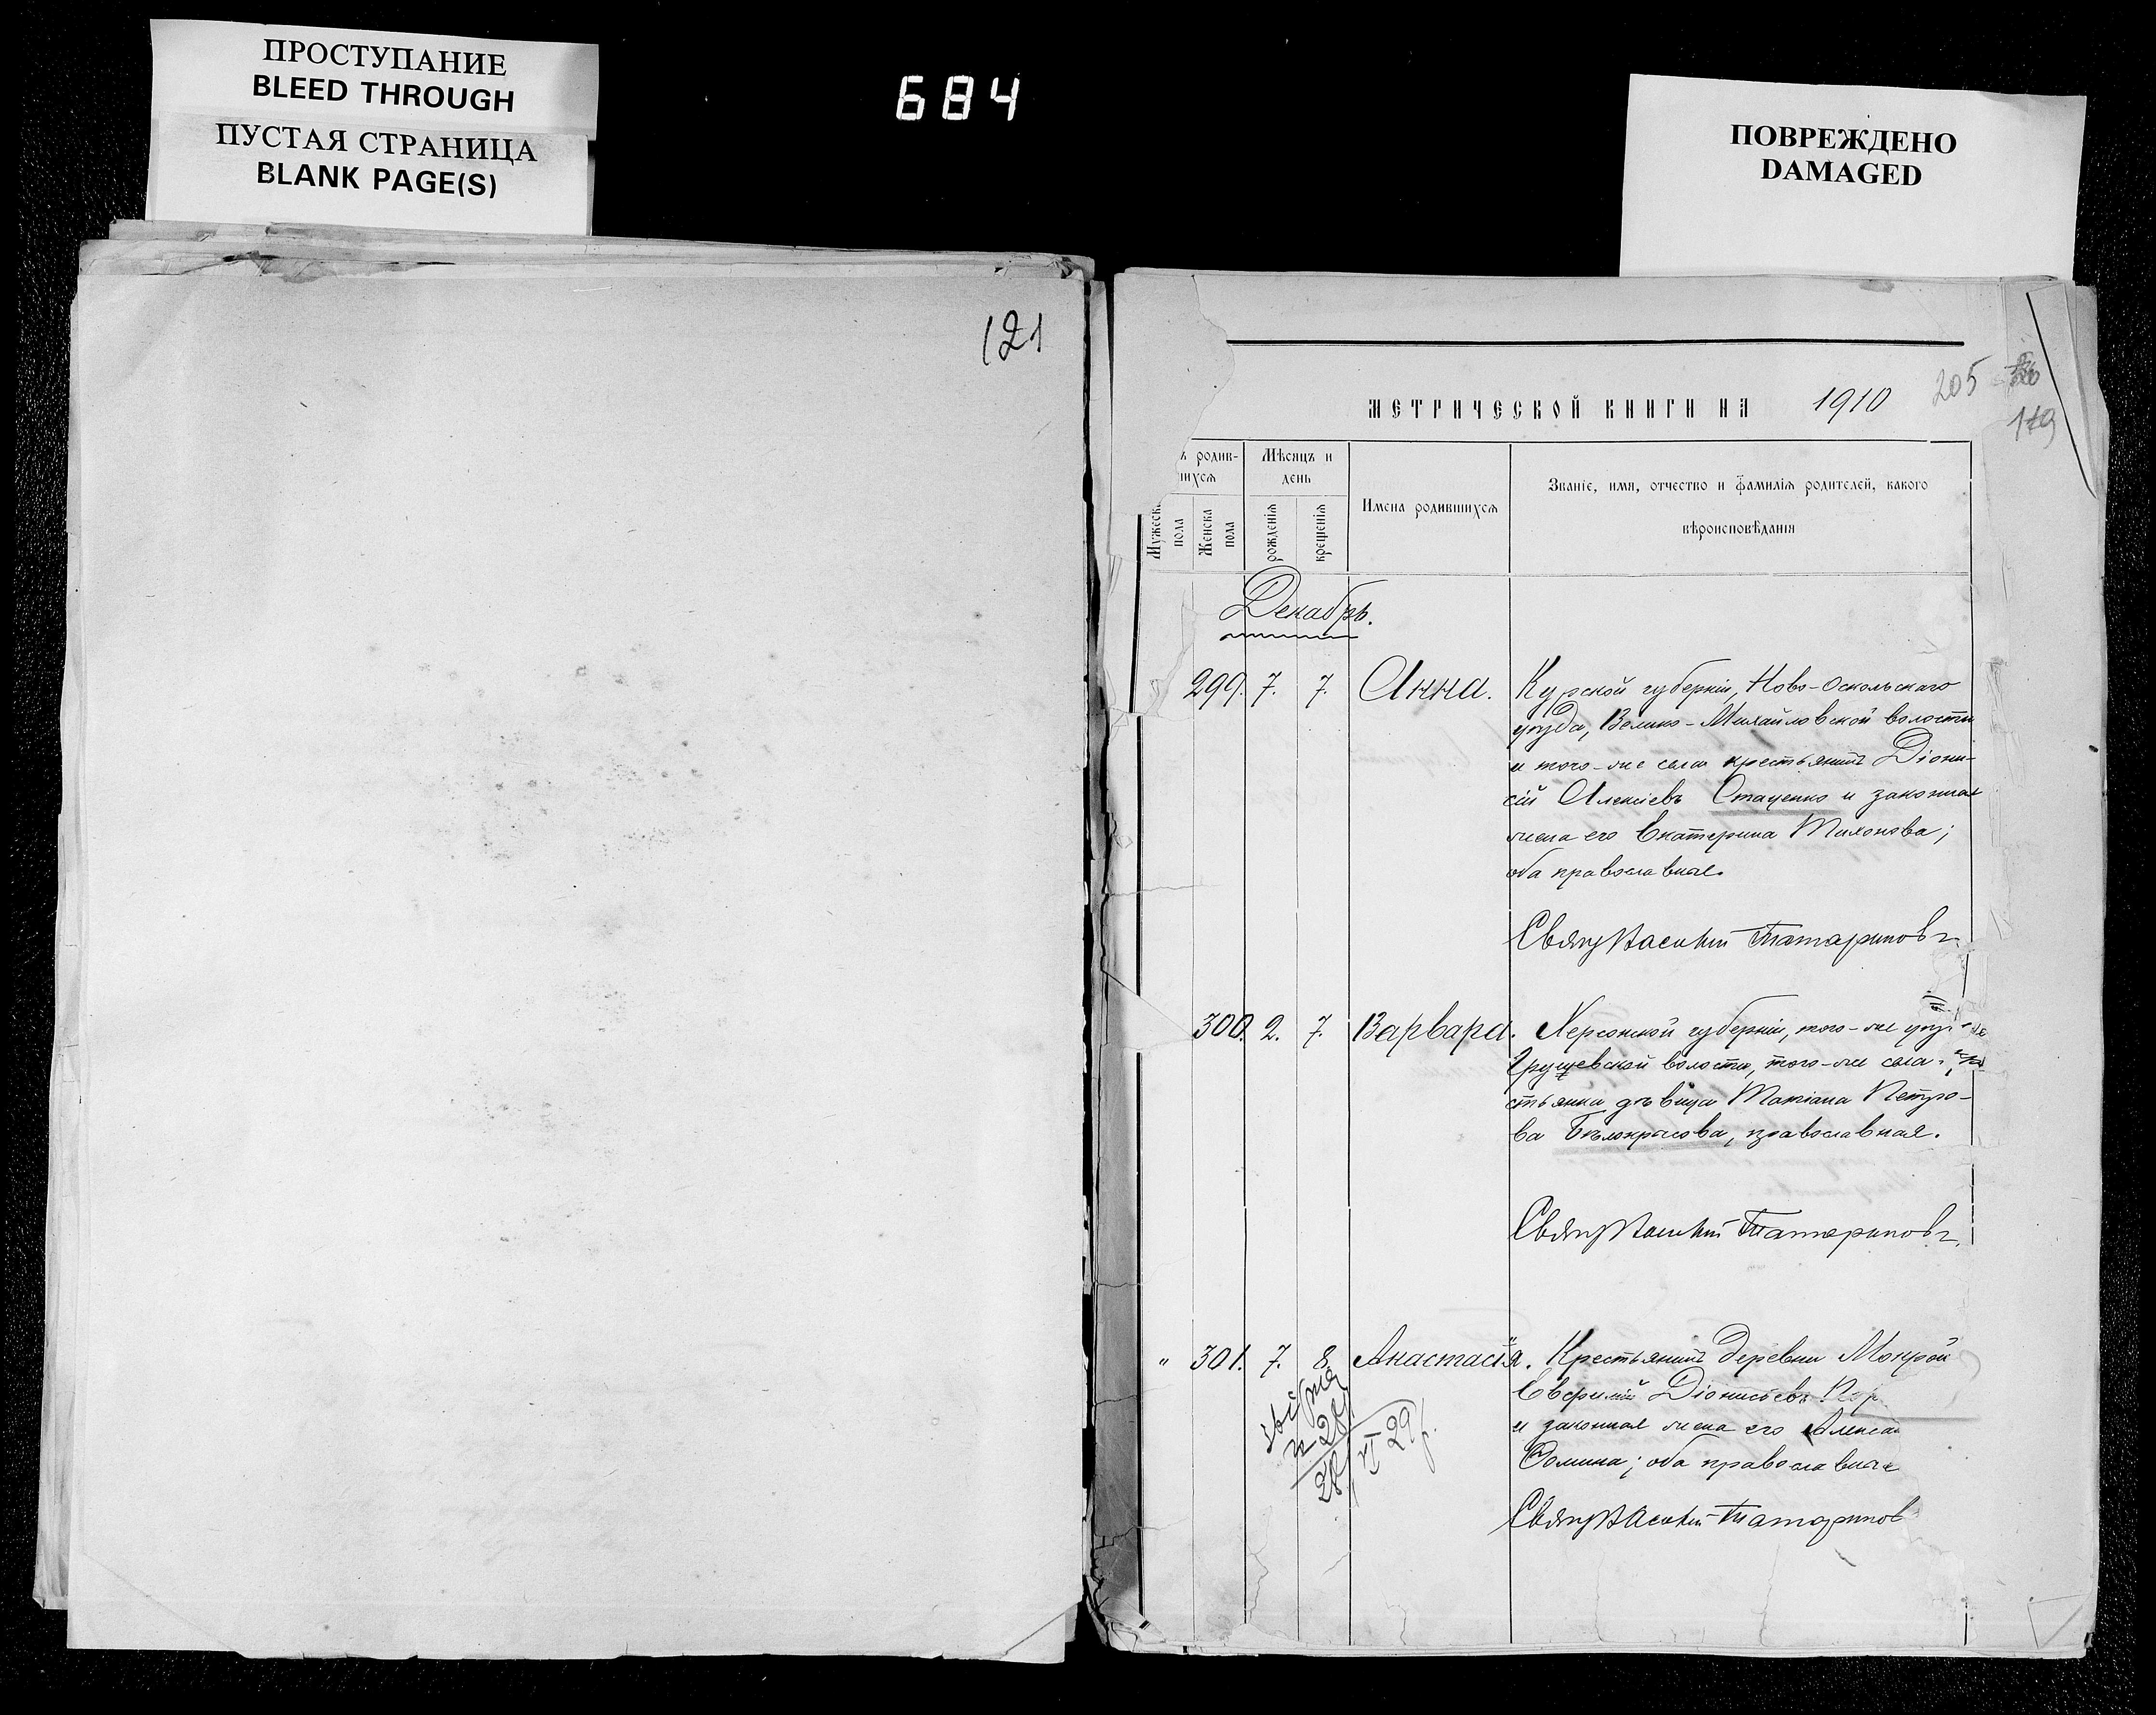 ПРОСТУПАНИЕ
BLEED THROUGH
ПУСТАЯ СТРАНИЦА
BLANK PAGE(S)
684
ПОВРЕЖДЕНО
DAMAGED
121
МЕТРИЧЕСКОЙ КНИГИ НА 1910
205
ъ родив-
шихся
Мѣсяцъ и
день
Мужеск.
пола
Женска
пола
рожденія
крещенія
Имена родившихся
Званіе, имя, отчество и фамилія родителей, какого
вѣроисповѣданія
Декабрь.
299. 7. 7. Анна. Курской губерніи, Ново-Оскольскаго
уѣзда, Велико-Михайловской волости
и того-же села крестьянинъ Діони-
сій Алексіевъ Стаценко и законная
жена его Екатерина Тихонова;
оба православные.
Свящ Василій Татариновъ
300. 2. 7. Варвара. Херсонской губерніи, того-же
Грушевской волости, того-же села
стьянка дѣвица Татіана Петро-
ва Бѣлокрысова, православная.
Свящ Василій Татариновъ
" 301. 7. 8. Анастасія. Крестьянинъ деревни Мокрой
Евфимій Діонисіевъ
и законная жена его
Фомина; оба православные
Свящ Василій Татаринов